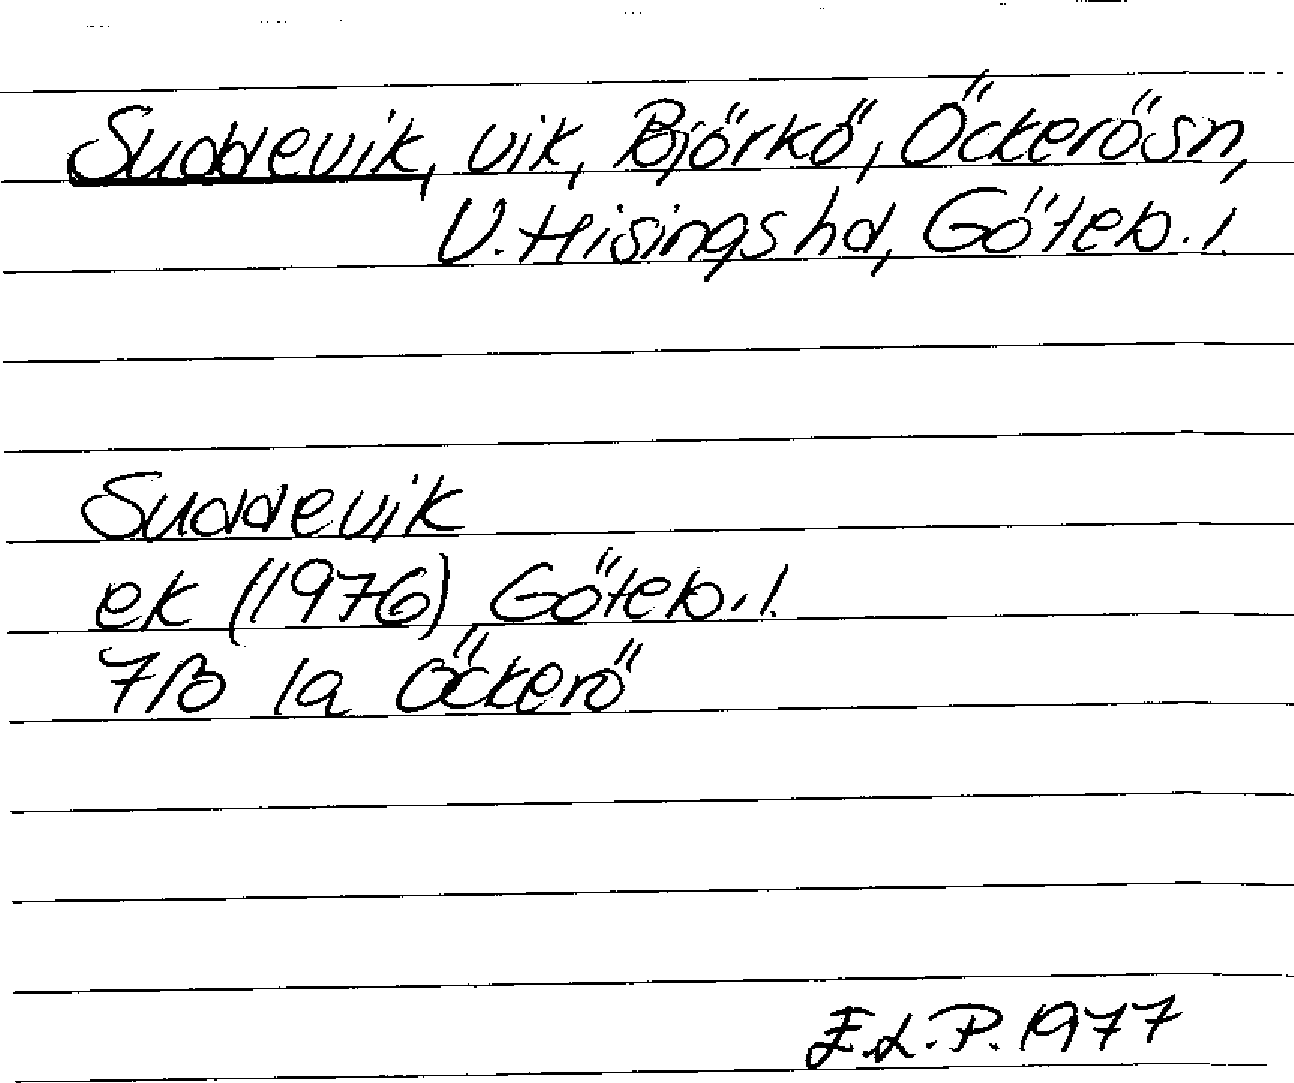 Suddevik, vik, Björkö, Öckerö sn,
V. Hisings hd, Göteb. l.
Suddevik
ek (1976) Göteb. l.
7B 1a Öckerö
E.L.P. 1977